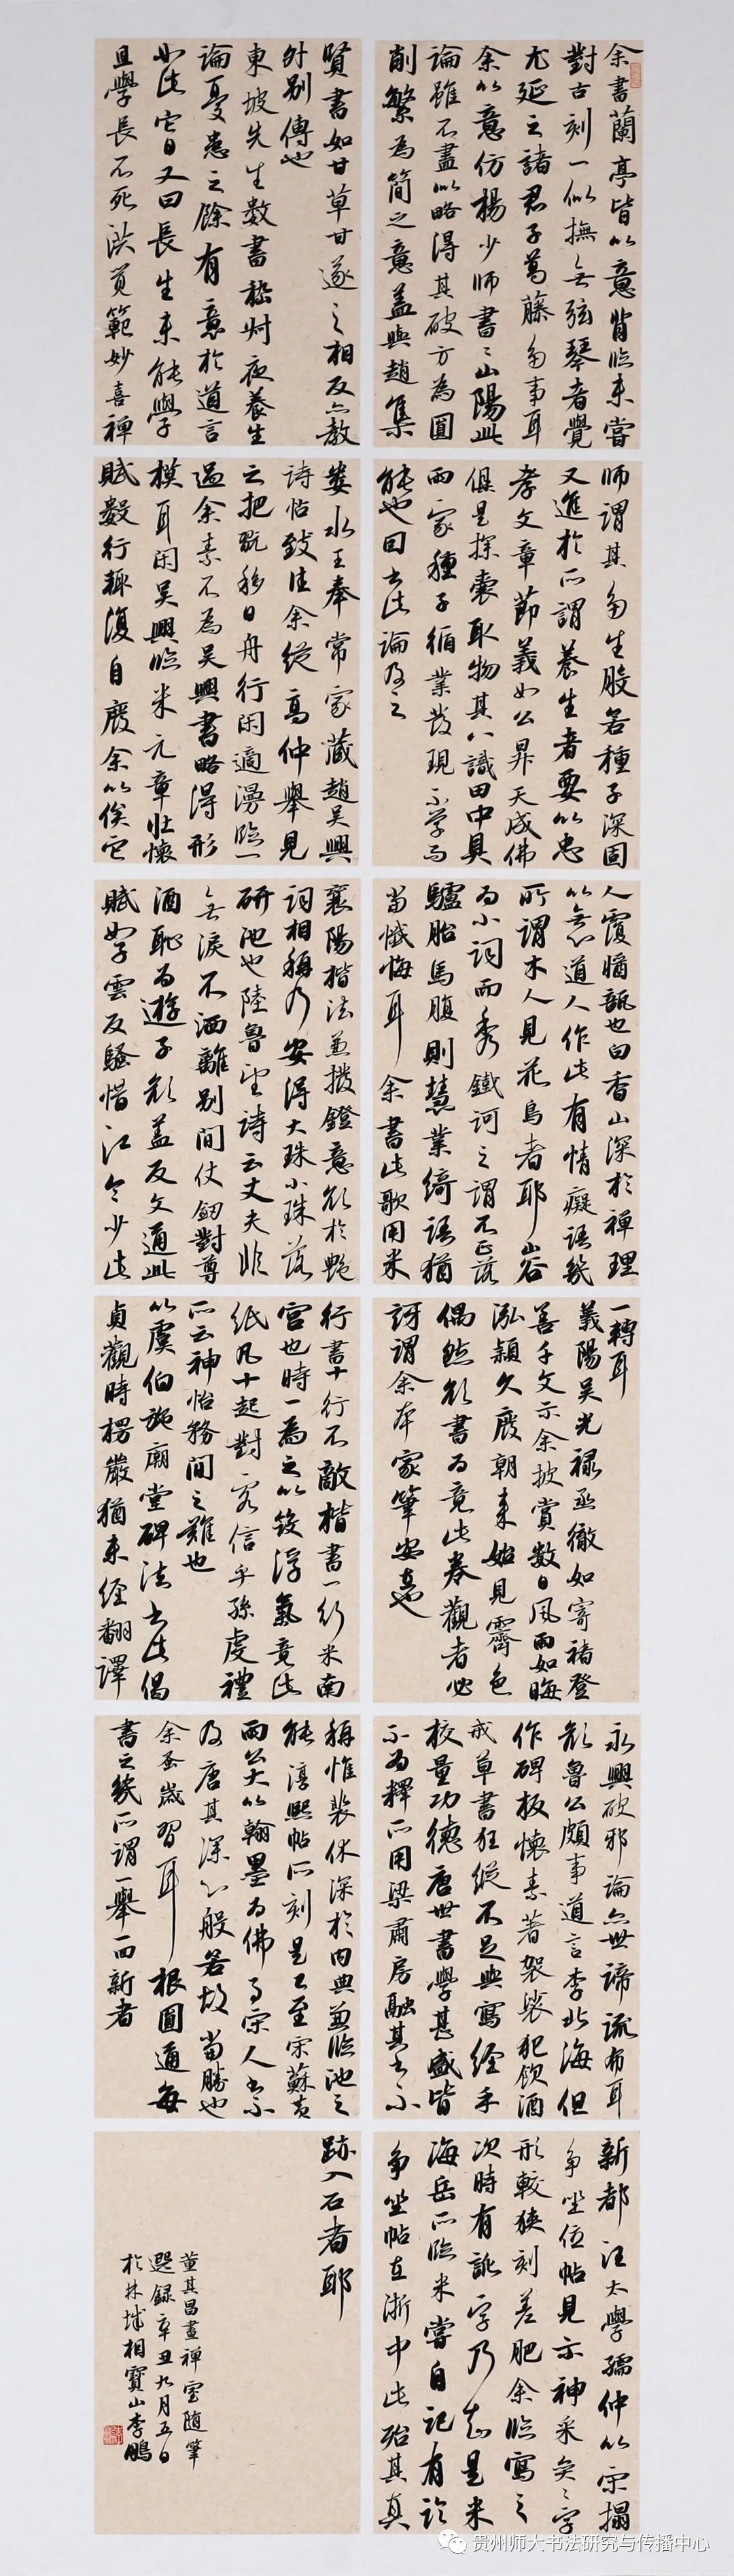 余書蘭亭皆以意背臨未嘗
對古刻一似撫無弦琴者覺
尤延之諸君子葛藤多事耳
余以意仿楊少師書書山陽此
論雖不盡似略得其破方為圓
削繁為簡之意蓋與趙集
賢書如甘草甘遂之相反亦教
外別傳也
東坡先生數書嵇叔夜養生
論憂患之餘有意於道言
如此官日又曰長生未能學
且學長不死洪覺範妙喜禪
師謂其多生般若種子深固
又進於所謂養生者要以忠
孝文章節義如公昇天成佛
俱是探囊取物其八識田中具
兩家種子循業發現不學而
能也因書此論及之
婁水王奉常家藏趙吳興
詩帖致佳余從高仲舉見
之把翫移日舟行閑適漫臨一
過余素不為吳興書略得形
模耳閑吳興臨米元章壯懷
賦數行輒復自廢余以俟它
人覆醬瓿也白香山深於禪理
以無心道人作此有情癡語幾
所謂木人見花鳥者耶山谷
為小詞而秀鐵訶之謂不止落
驢胎馬腹則慧業綺語猶
當懺悔耳余書此歌用米
襄陽楷法兼撥鐙意欲於艷
詞相稱乃安得大珠小珠落
研池也陸魯望詩云丈夫非
無淚不洒離別間仗劒對尊
酒恥為遊子顏蓋反文通此
賦如子雲反騷惜江令少此
一轉耳
義陽吳光祿丞徹如寄褚登
善千文示余披賞數日風雨如晦
泓穎久廢朝來始見霽色
偶然欲書為竟此卷觀者必
訝謂余本家筆安在也
行書十行不敵楷書一行米南
宮也時一為之以斂浮氣竟此
紙凡十起對客信乎孫虔禮
所云神怡務閒之難也
以虞伯施廟堂碑法書此偈
貞觀時楞嚴猶未經翻譯
永興破邪論亦世諦流布耳
顏魯公頗事道言李北海但
作碑板懷素著袈裟犯飲酒
戒草書狂縱不足與寫經手
校量功德唐世書學甚盛皆
不為釋所用梁肅房融其書不
稱惟裴休深於內典兼臨池之
能淳熙帖所刻是已至宋蘇黃
兩公大以翰墨為佛事宋人書不
及唐其深心般若故當勝也
余蚤歲習耳根圓通每
書之幾所謂一舉而新者
新都汪太學孺仲以宋搨
爭坐位帖見示神采奕奕字
形較狹刻差肥余臨寫之
次時有訛字乃知是米
海岳所臨米嘗自記有臨
爭坐帖在浙中此殆其真
跡入石者耶
董其昌畫禪室隨筆
選錄辛丑九月五日
於林城相寶山李鵬
贵州师大书法研究与传播中心